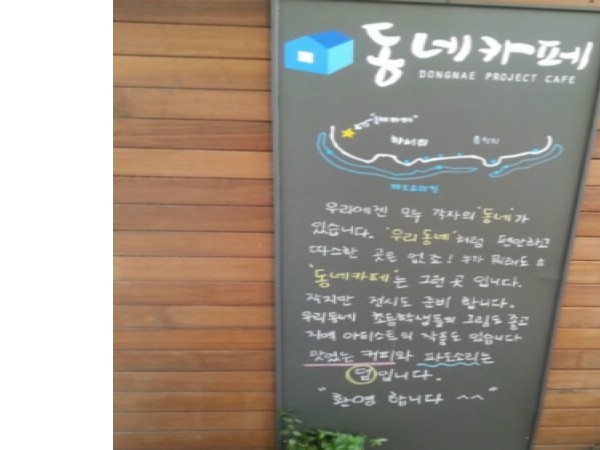 동네카페
DONGNAE PROJECT CAFE
우리에겐 모두 각자의 "동네"가
있습니다. "우리동네"처럼 편안하고
따스한 곳은 없죠! 누가 뭐래도
"동네카페"는 그런 곳 입니다.
작지만 전시도 준비 합니다.
우리동네 초등학생들의 그림도 좋고
지역 아티스트의 작품도 있습니다
맛있는 커피와 파도소리는
덤입니다.
"환영 합니다 ^^"